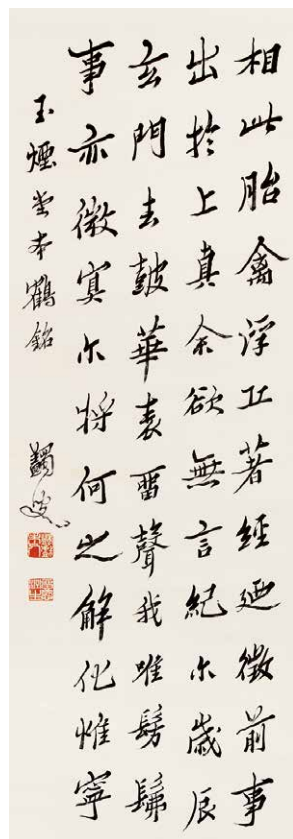 相此胎禽浮丘著經廼徵前事
出於上真余欲無言紀尒歲辰
玄門去鼓華表留聲我唯髣髴
事亦微冥尒將何之解化惟寧
玉煙堂本鶴銘 蠲叟